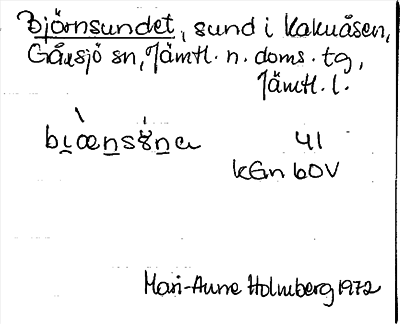 Björnsundet, sund i Kakuåsen,
Gåxsjö sn, Jämtl. n. doms. tg,
Jämtl. l.
41
Mari-Anne Holmberg 1972